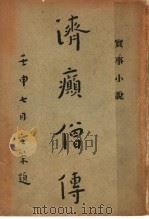 實事小說
濟癲僧傳
壬申七月
題